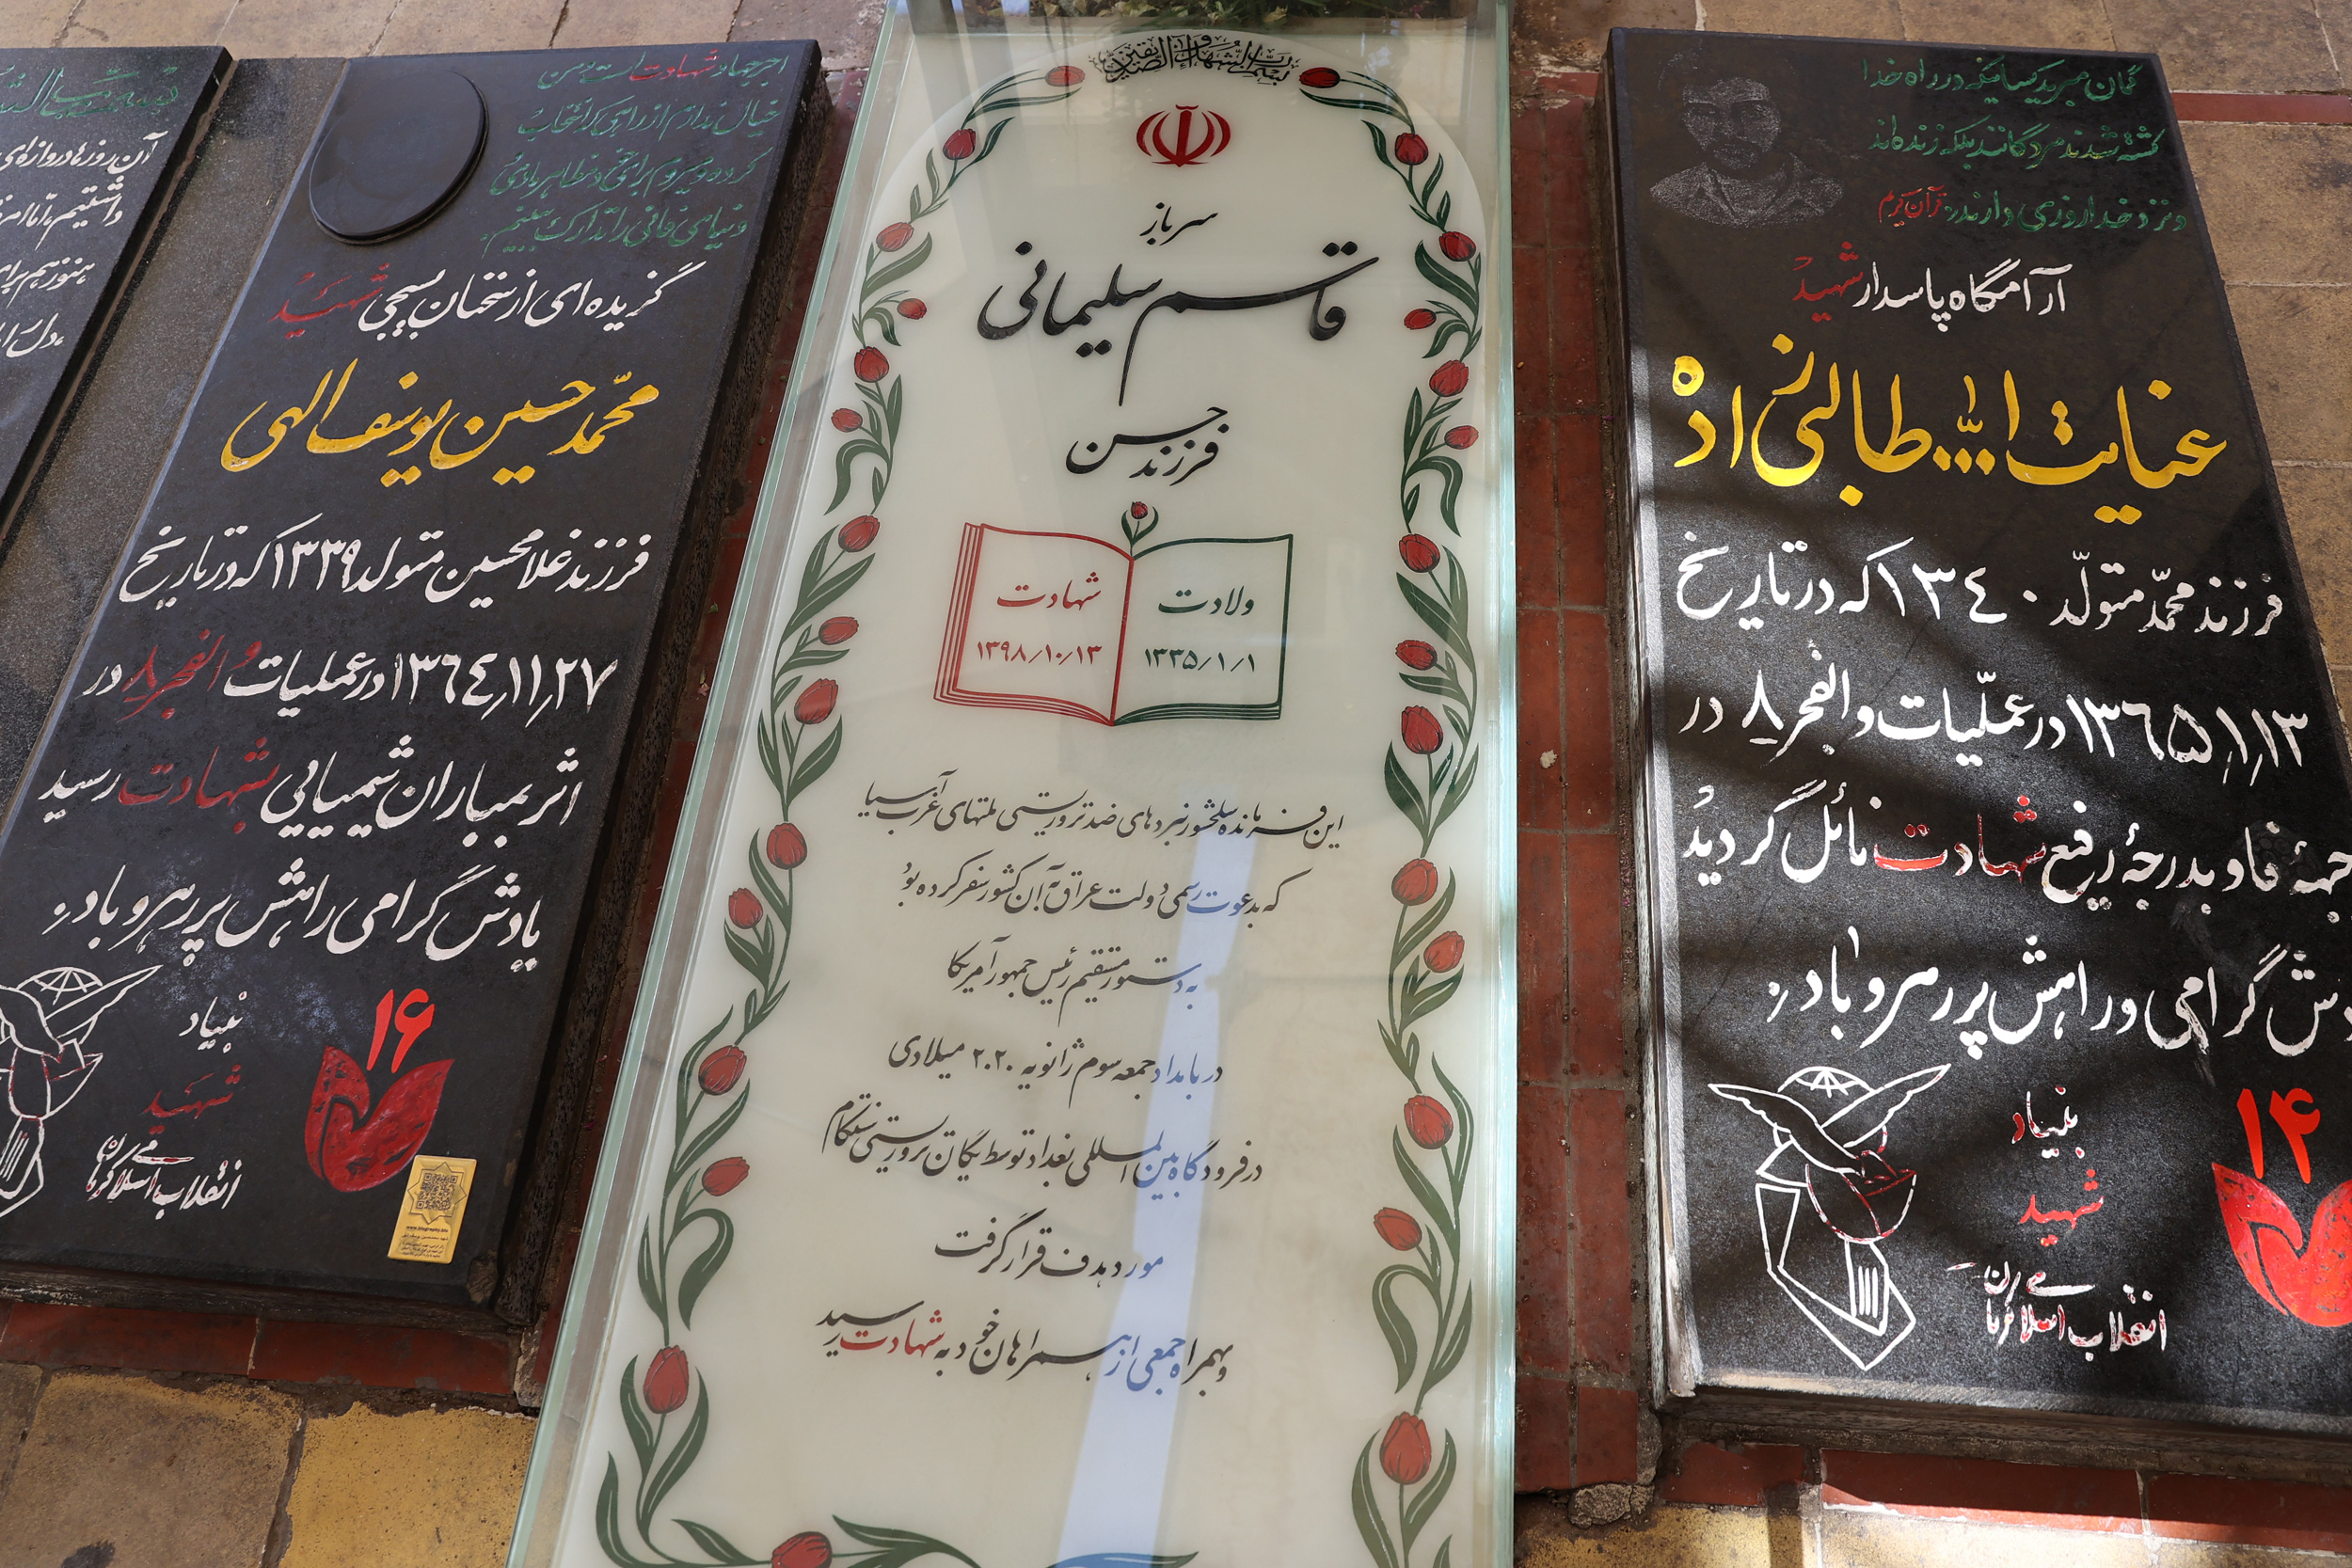 بسم رب الشهداء و الصدیقین
سرباز
قاسم سلیمانی
فرزند حسن
ولادت
۱۳۳۵/۱/۱
شهادت
۱۳۹۸/۱۰/۱۳
این فرمانده سلحشور نبردهای ضد تروریستی ملتهای غرب آسیا
که بدعوت رسمی دولت عراق به آن کشور سفر کرده بود
به دستور مستقیم رئیس جمهور آمریکا
در بامداد جمعه سوم ژانویه ۲۰۲۰ میلادی
در فرودگاه بین المللی بغداد توسط یگان تروریستی سنتکام
مورد هدف قرار گرفت
و بهمراه جمعی از همراهان خود به شهادت رسید
گمان مبرید کسانیکه در راه خدا
کشته شدند مردگانند بلکه زنده اند
و نزد خدا روزی دارند، قرآن کریم
آرامگاه پاسدار شهید
عنایت ا... طالبی نژاد
فرزند محمّد متولّد ۱۳٤۰ که در تاریخ
۱۳٦۵/۱/۱۳ در عملّیات والفجر ۸ در
جبهۀ فاو بدرجۀ رفیع شهادت نائل گردید
گرامی و راهش پر رهرو باد.
۱۴
بنیاد
شهید
انقلاب اسلامی کرمان
اجر جهاد شهادت است و من
خیال ندارم از راهی که انتخاب
کرده و میروم برای خود مظاهر مادی
دنیای فانی را تدارک ببینم.
گزیده ای از سخنان بسیجی شهید
محمّد حسین یوسف الهی
فرزند غلامحسین متولد ۱۳۳۹ که در تاریخ
۱۳٦٤/۱۱/۲۷ در عملیات والفجر ۸ در
اثر بمباران شیمیایی شهادت رسید
یادش گرامی راهش پر رهرو باد.
۱۶
بنیاد
شهید
انقلاب اسلامی کرمان
آن روزها دروازه ای
داشتیم، امّا امروز
هنوز هم برای